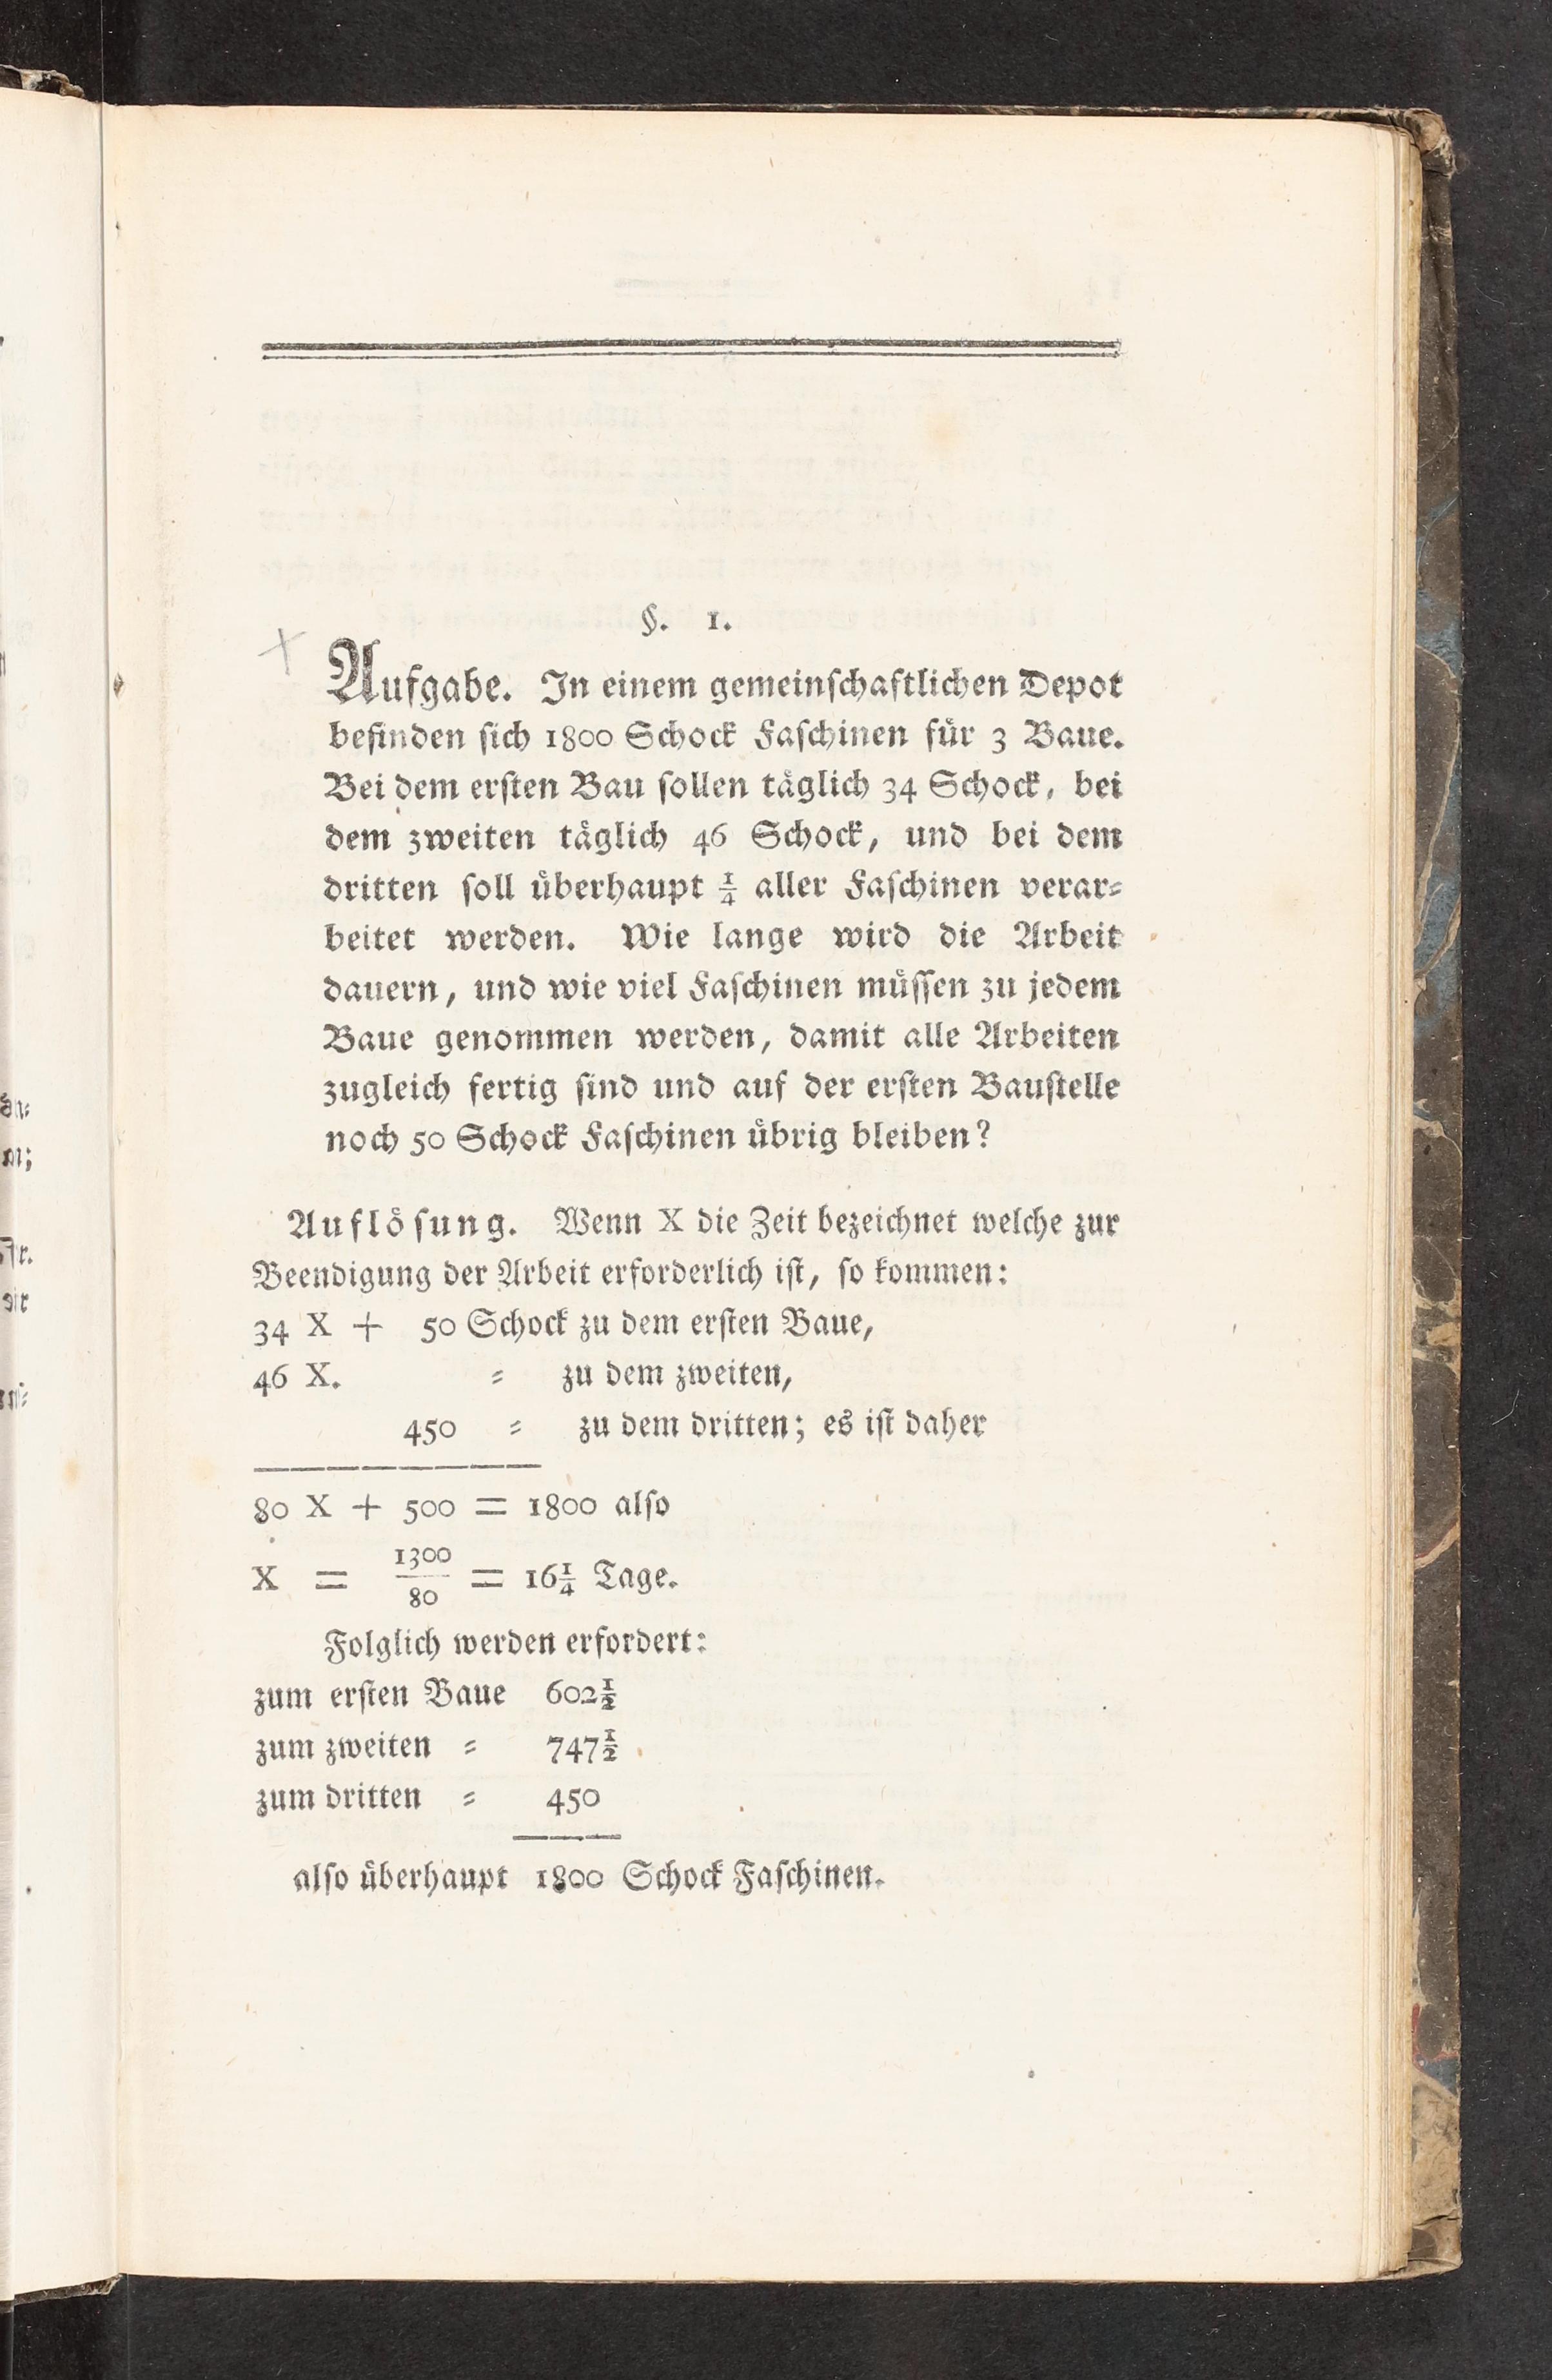 §. 1.
Aufgabe. In einem gemeinſchaftlichen Depot
befinden ſich 1800 Schock Faſchinen für 3 Baue.
Bei dem erſten Bau ſollen täglich 34 Schock, bei
dem zweiten täglich 46 Schock, und bei dem
dritten ſoll überhaupt ¼ aller Faſchinen verar⸗
beitet werden. Wie lange wird die Arbeit
dauern, und wie viel Faſchinen müſſen zu jedem
Baue genommen werden, damit alle Arbeiten
zugleich fertig ſind und auf der erſten Bauſtelle
noch 50 Schock Faſchinen übrig bleiben?
Auflöſung. Wenn X die Zeit bezeichnet welche zur
Beendigung der Arbeit erforderlich iſt, ſo kommen:
34 X + 50 Schock zu dem erſten Baue,
46 X. ⸗ zu dem zweiten,
450 ⸗ zu dem dritten; es iſt daher
80 X + 500 = 1800 alſo
X = 1300/80 = 16¼ Tage.
Folglich werden erfordert:
zum erſten Baue 602½
zum zweiten ⸗ 747½
zum dritten ⸗ 450
alſo überhaupt 1800 Schock Faſchinen.